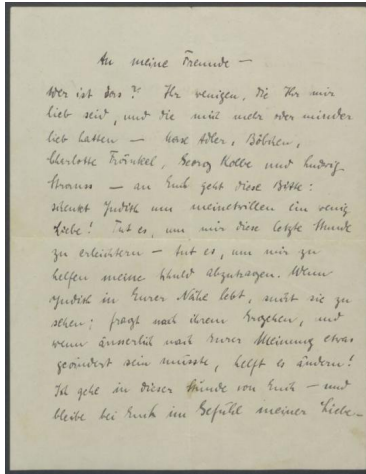 An meine Freunde —
Wer ist das?! Ihr wenigen, die Ihr mir
lieb seid, und die mich mehr oder minder
lieb hatten — Adler, Böbchen,
Charlotte Fränkel, Georg Kolbe und Ludwig
Strauss — an Euch geht diese Bitte:
schenkt Judith um meinetwillen ein wenig
Liebe! Tut es, um mir diese letzte Stunde
zu erleichtern — tut es, um mir zu
helfen meine Schuld abzutragen. Wenn
Judith in Eurer Nähe lebt, sucht sie zu
sehen; fragt nach ihrem Ergehen, und
wenn äusserlich nach Eurer Meinung etwas
geändert sein müsste, helft es ändern!
Ich gehe in dieser Stunde von Euch — und
bleibe bei Euch im Gefühl meiner Liebe —